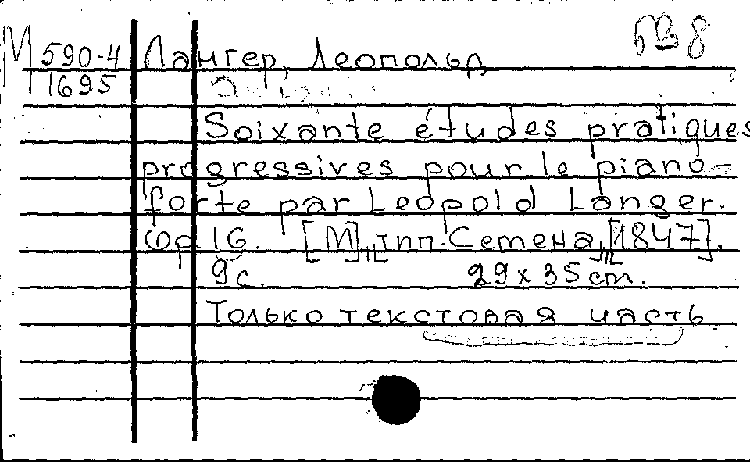 М 590-4 Лангер, Леопольд
1695
Soixante études pratiques
progressives pour le piano-
forte par Leopold Langer.
Op 16. [М], тип. Семена, [1847].
9 с. 29 x 35 cm.
Только текстовая часть.